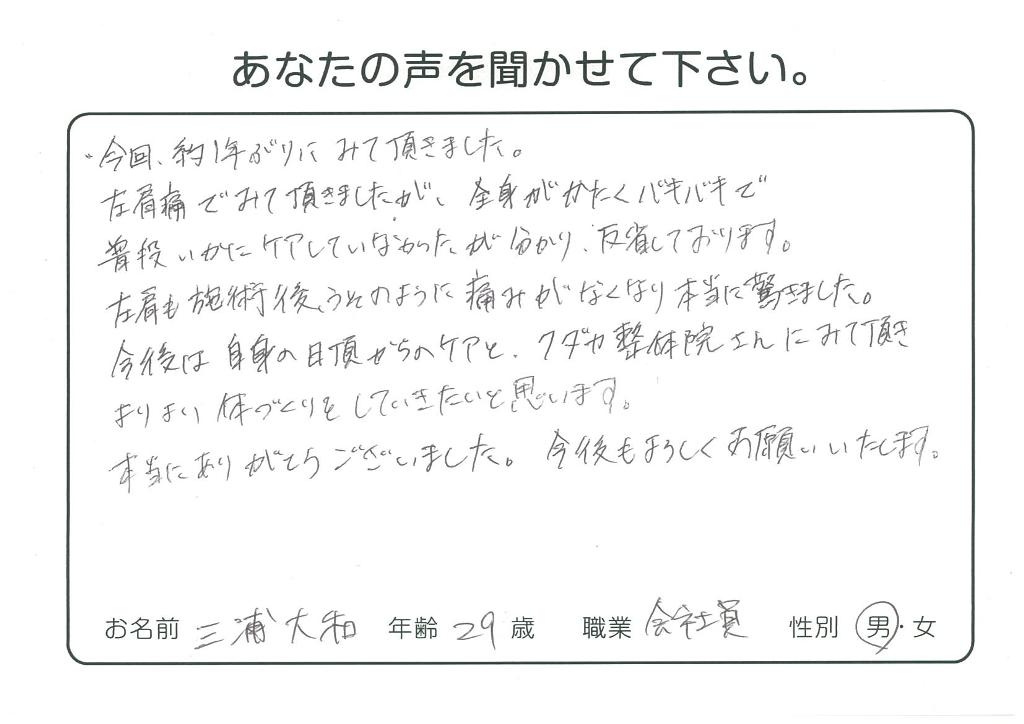 あなたの声を聞かせて下さい。
今回、約1年ぶりに みて頂きました。
左肩痛でみて頂きましたが、全身がかたくバキバキで
普段いかにケアしていなかったが分かり、反省しております。
左肩も施術後、うそのように痛みがなくなり本当に驚きました。
今後は自身の日頃からのケアと、クダカ整体院さんにみて頂き
よりよい体づくりをしていきたいと思います。
本当にありがとうございました。今後もよろしくお願いいたします。
お名前 三浦大和 年齢 29 歳 職業 会社員 性別 男・女